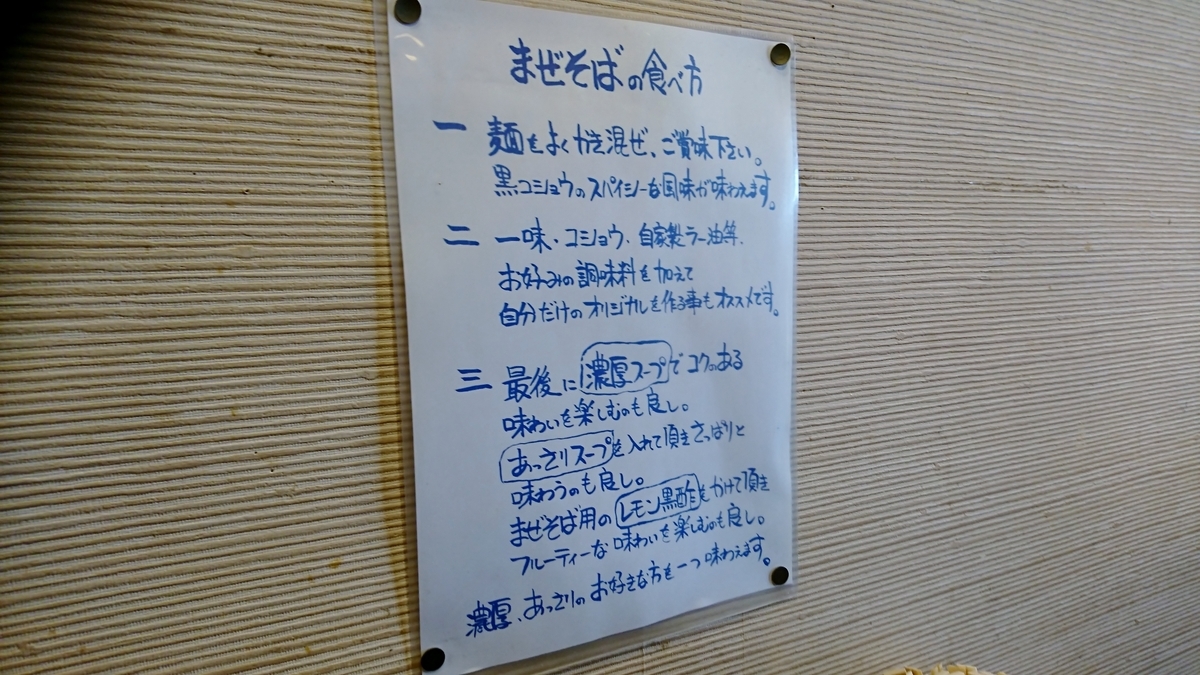 まぜそばの食べ方
一 麺をよくかき混ぜ、ご賞味下さい。
黒コショウのスパイシーな風味が味わえます。
二 一味・コショウ、自家製ラー油等、
お好みの調味料を加えて
自分だけのオリジナルを作る事もオススメです。
三 最後に濃厚スープでコクのある
味わいを楽しむのも良し。
あっさりスープを入れて頂きさっぱりと
味わうのも良し。
まぜそば用のレモン黒酢をかけて頂き
フルーティーな味わいを楽しむのも良し。
濃厚、あっさりのお好きな方を一つ味わえます。